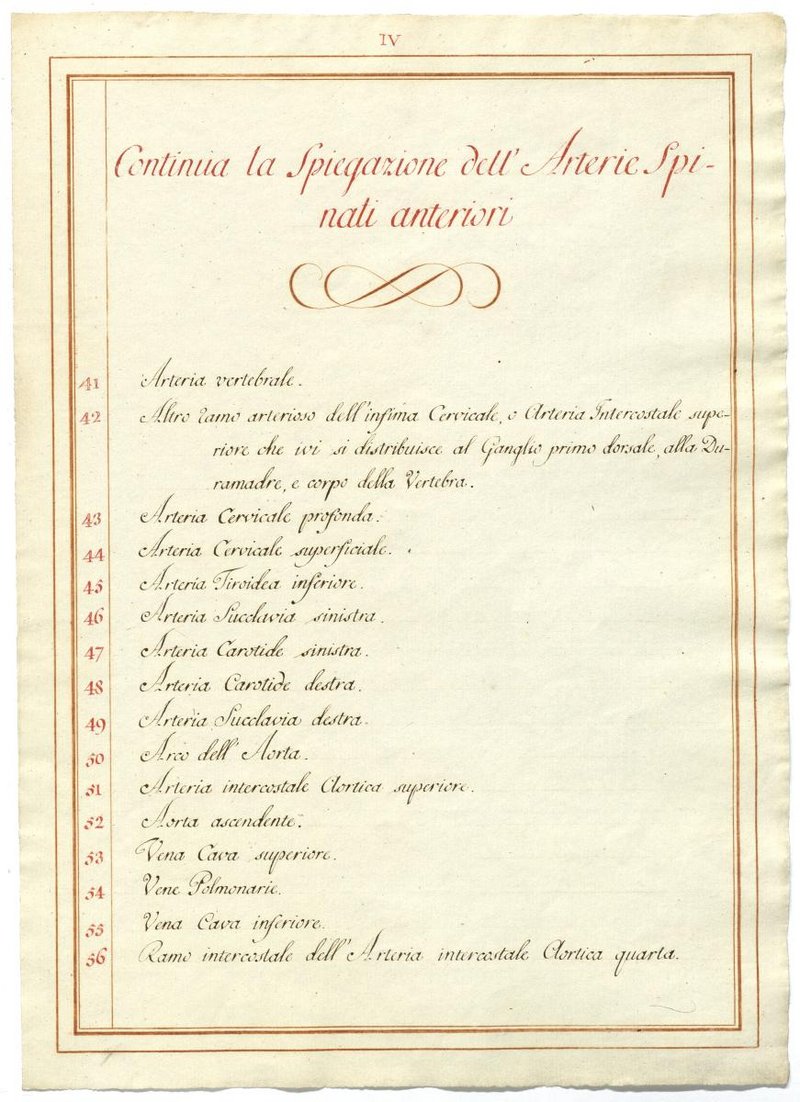 IV
Continua la Spiegazione dell' Arterie Spi-
nali anteriori
41 Arteria vertebrale.
42 Altro ramo arterioso dell'infima Cervicale, o Arteria Intercostale supe-
riore che ivi si distribuisce al Ganglio primo dorsale, alla Du-
ramadre, e corpo della Vertebra.
43 Arteria Cervicale profonda.
44 Arteria Cervicale superficiale.
45 Arteria Tiroidea inferiore.
46 Arteria Succlavia sinistra.
47 Arteria Carotide sinistra.
48 Arteria Carotide destra.
49 Arteria Succlavia destra.
50 Arco dell' Aorta.
51 Arteria intercostale Aortica superiore.
52 Aorta ascendente.
53 Vena Cava superiore.
54 Vene Polmonarie.
55 Vena Cava inferiore.
56 Ramo intercostale dell' Arteria intercostale Aortica quarta.